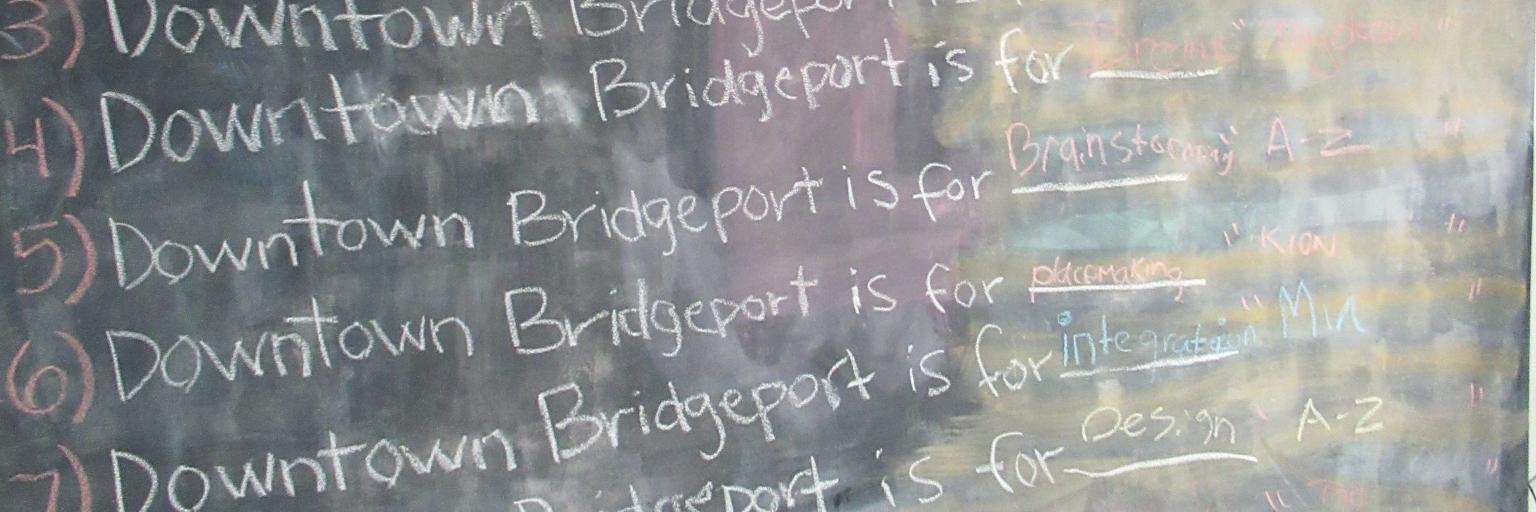 3) Downtown Bridgeport
4) Downtown Bridgeport is for Dreams " "
5) Downtown Bridgeport is for Brainstorming " A-Z "
6) Downtown Bridgeport is for placemaking " KION "
7) Downtown Bridgeport is for integration " Min "
Bridgeport is for Design " A-Z "